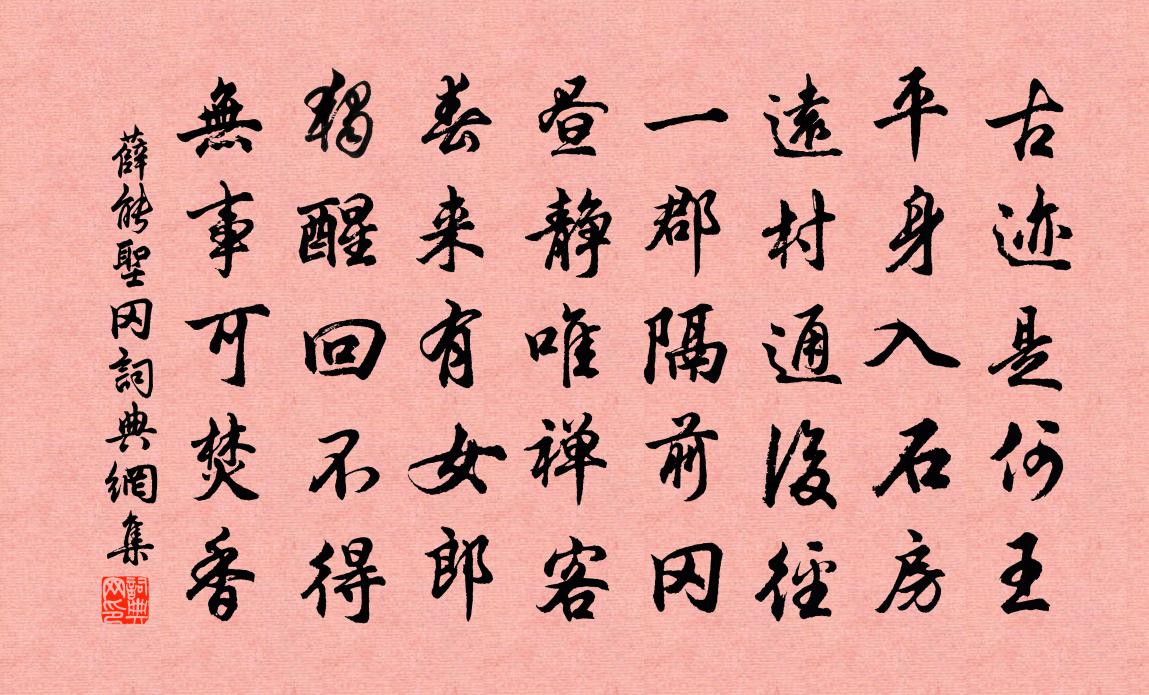 古迹是何王
平身入石房
遠村通後徑
一郡隔前冈
昼静唯禅客
春来有女郎
独醒回不得
無事可焚香
薛能聖冈詞典網集
詞典网印